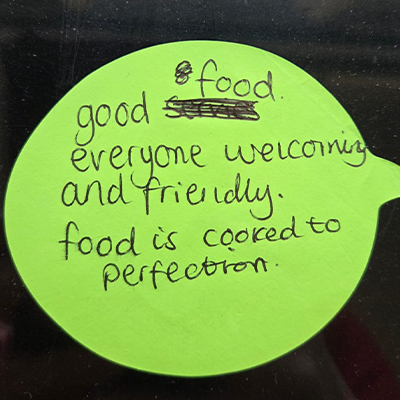 food.
good
everyone welcoming
and friendly.
food is cooked to
perfection.